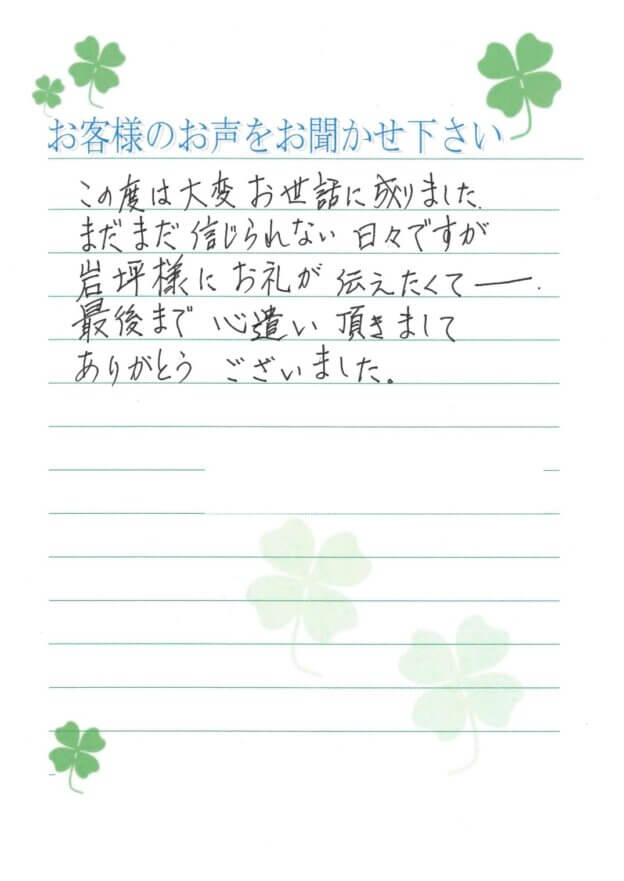 お客様のお声をお聞かせ下さい
この度は大変お世話に成りました.
まだまだ信じられない日々ですが
岩坪様にお礼が伝えたくて――.
最後まで心遣い頂きまして
ありがとうございました。